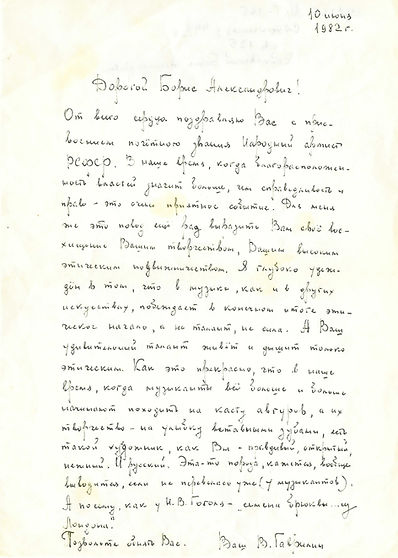 10 июня
1982 г.
Дорогой Борис Александрович!
От всего сердца поздравляю Вас с прис-
воением почётного звания Народный артист
РСФСР. В наше время, когда благорасположен-
ность властей значит больше, чем справедливость и
право - это очень приятное событие. Для меня
же это повод ещё раз выразить Вам своё вос-
хищение Вашим творчеством, Вашим высоким
этическим подвижничеством. Я глубоко убеж-
дён в том, что в музыке, как и в других
искусствах, побеждает в конечном итоге эти-
ческое начало, а не талант, не сила. А Ваш
удивительный талант живёт и дышит только
этическим. Как это прекрасно, что в наше
время, когда музыканты всё больше и больше
начинают походить на касту авгуров, а их
творчество - на улыбку вставными зубами, есть
такой художник, как Вы - правдивый, открытый,
нежный. И русский. Эта-то порода, кажется, вообще
выводится, если не перевелась уже (у музыкантов).
А посему, как у Н.В. Гоголя - семена брюквы... из
Лондона.
Позвольте обнять Вас. Ваш В. Гаврилин